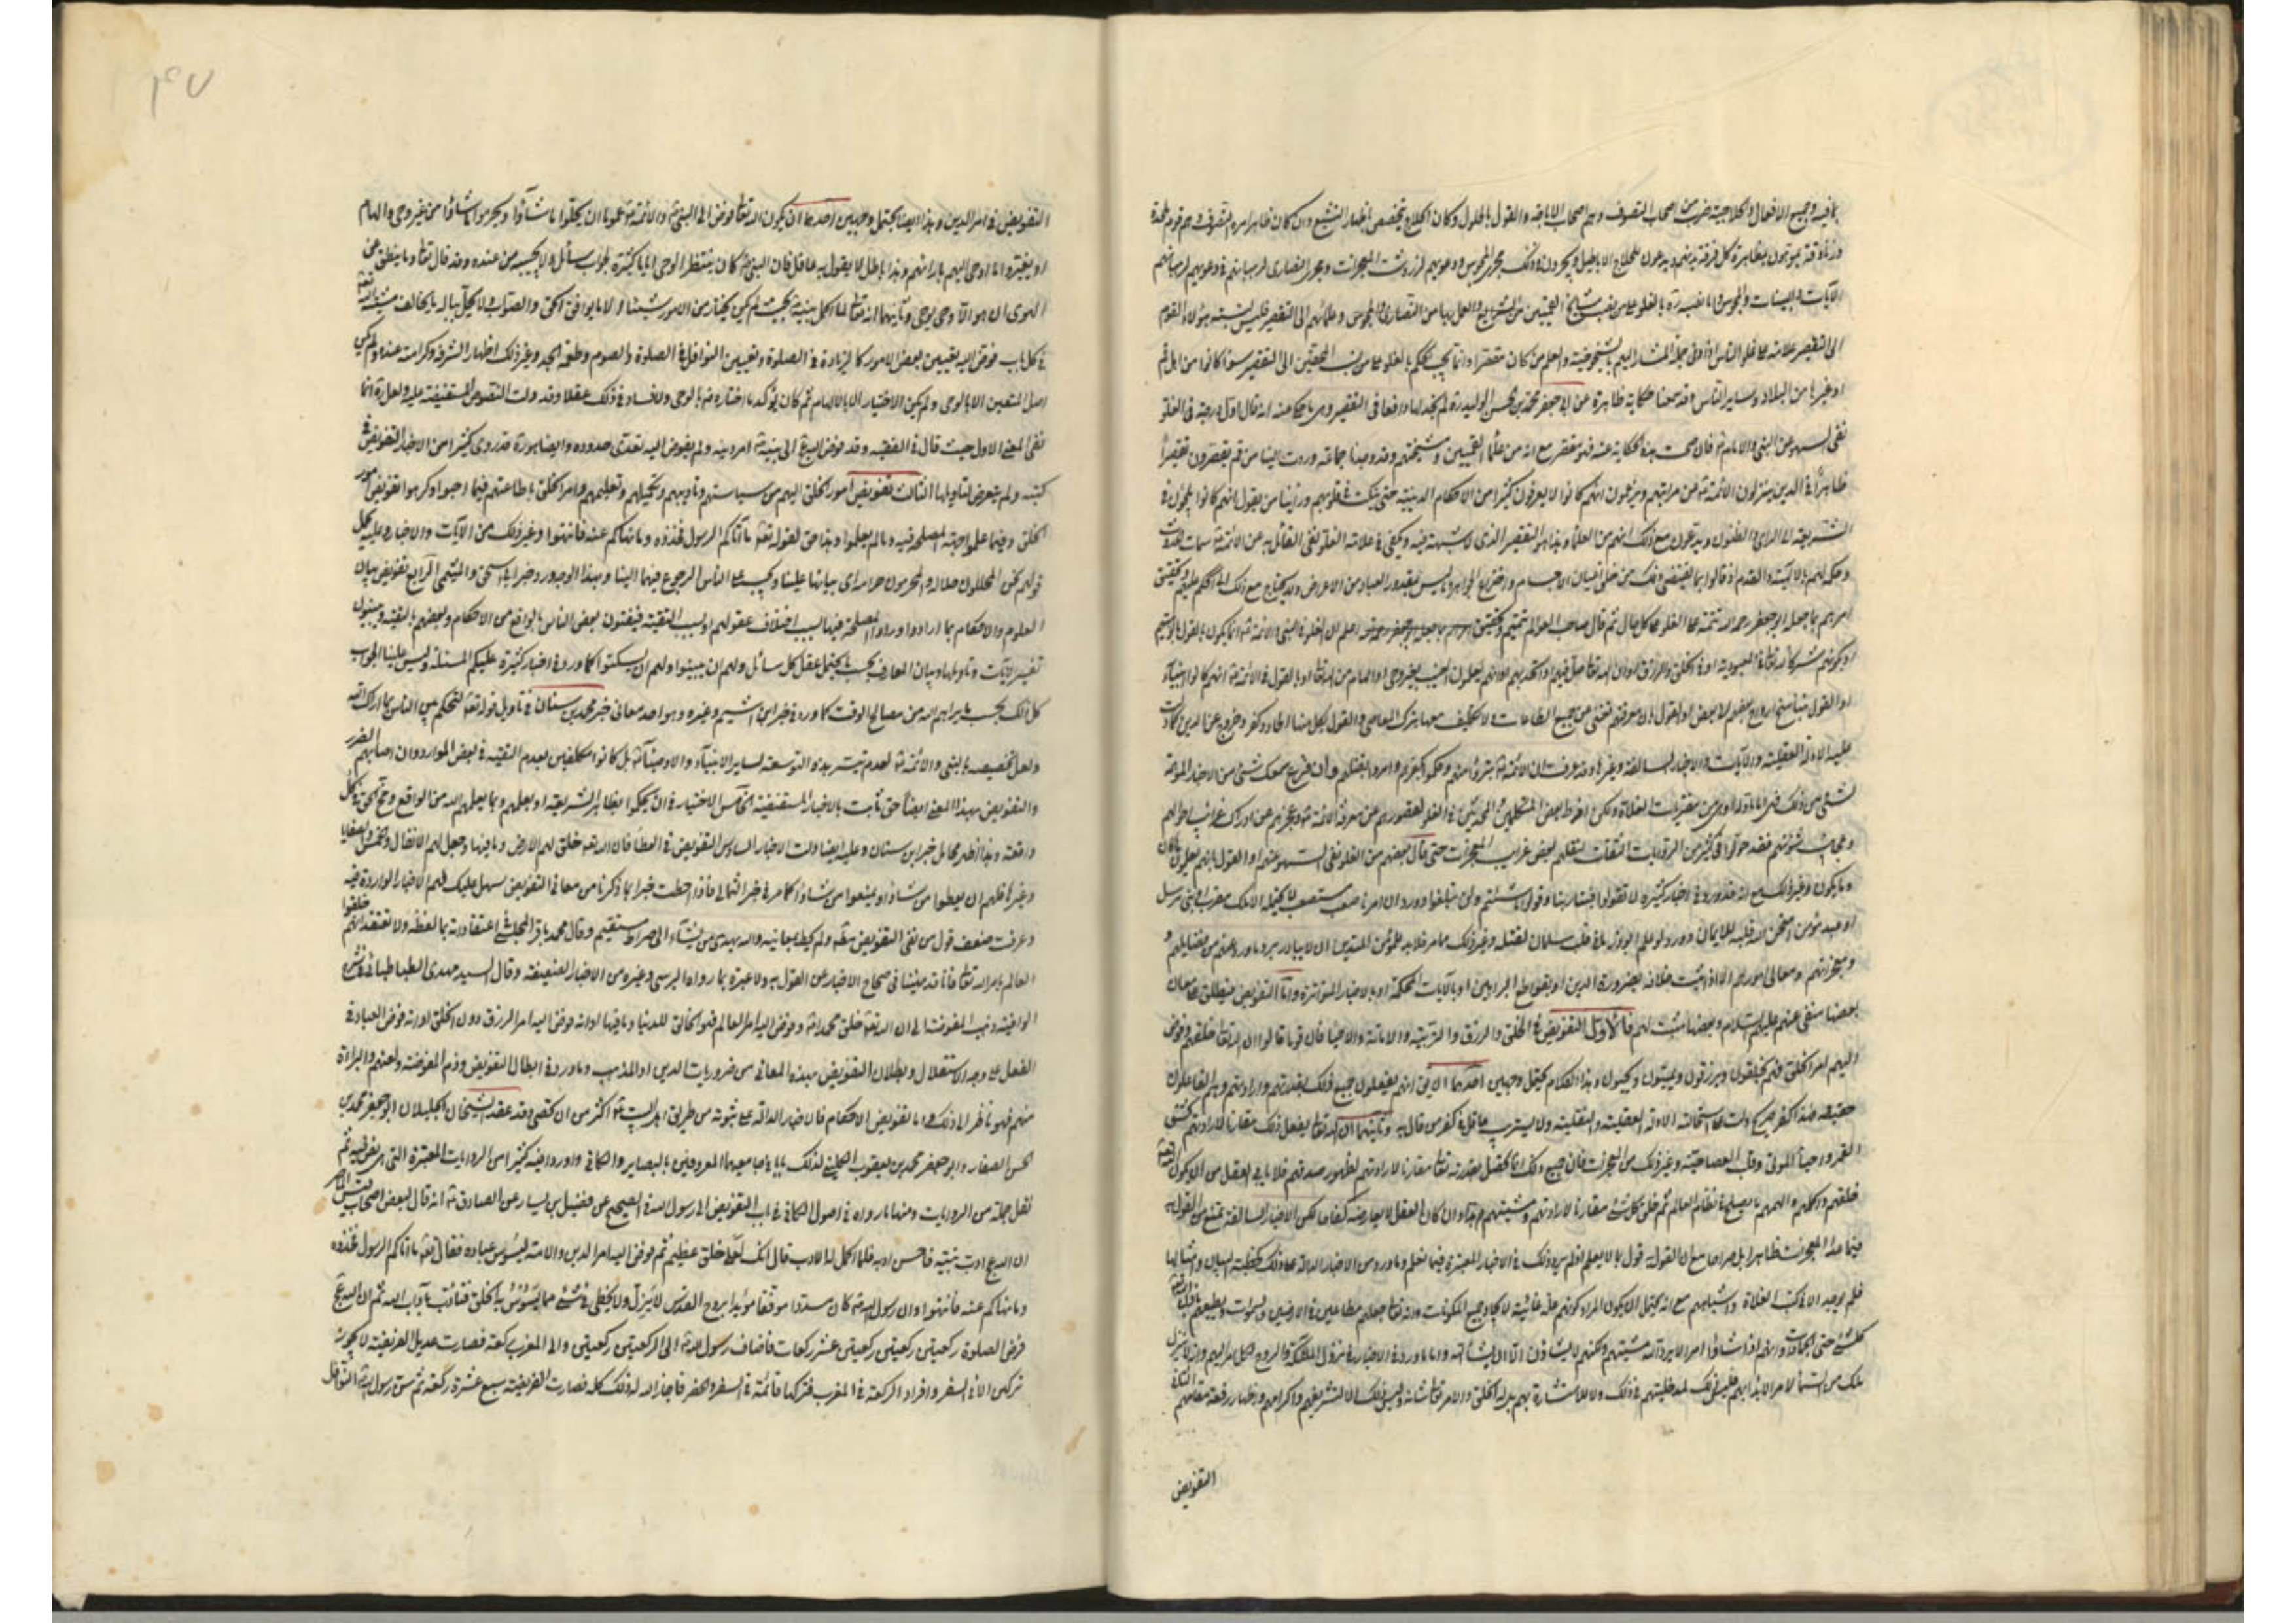 بما فيه وجميع الافعال والحلاجية ضرب من اصحاب التصوف وهم اصحاب الاباحة والقول بالحلول وكان الحلاج يتخصص باظهار التشيع وان كان ظاهر امره التصوف وهم قوم ملحدة
وزنادقة يموهون بمظاهرة كل فرقة بدينهم ويدعون للحلاج الاباطيل ويجرون في ذلك مجرى المجوس في دعويهم لزردشت المعجزات ومجرى النصارى في دعويهم لرهبانهم
الآيات والبينات والمجوس والنصارى اقرب الى العمل بالعبادات منهم وهم ابعد من الشرايع والعمل بها من النصارى والمجوس
الى التقصير علامة على غلو الناس اذ في جملة المشار اليهم بالشيخوخية والعلم من كان مقصرا وانما يجب الحكم بالغلو على من نسب المحقين الى التقصير سواء كانوا من اهل قم
او غيرها من البلاد وساير الناس وقد سمعنا حكاية ظاهرة عن ابي جعفر محمد بن الحسن الوليد ره لم نجد لها دافعا في التقصير وهي ما حكى عنه انه قال اول درجة في الغلو
نفى السهو عن النبي والامام فان صحت هذه الحكاية عنه فهو مقصر مع انه من علماء القميين ومشيختهم وقد وجدنا جماعة وردت الينا من قم يقصرون تقصيرا
ظاهرا في الدين ينزلون الائمة عن مراتبهم ويزعمون انهم كانوا لا يعرفون كثيرا من الاحكام الدينية حتى ينكت في قلوبهم ورأينا من يقول انهم كانوا يلجؤن في
الشريعة الى الراى والظنون ويدعون مع ذلك انهم من العلماء وهذا هو التقصير الذى لا شبهة فيه ويكفى في علامة الغلو نفى القائل به عن الائمة سمات الحدوث
وحكمه لهم بالالهية والقدم اذ قالوا بما يقتضى ذلك من خلق اعيان الاجسام واختراع الجواهر وما ليس بمقدور العباد من الاعراض ولا يحتاج مع ذلك الى الحكم عليهم وتحقيق
امرهم بما جعله ابو جعفر رحمه الله سمة على الغلو على كل حال ثم قال صاحب العوالم تتميم وتحقيق اعلم ان الغلو في النبي والائمة انما يكون بالقول بالوهيتهم
او بكونهم شركاء لله تعالى في العبودية او في الخلق والرزق او ان الله تعالى حل فيهم او اتحد بهم او انهم يعلمون الغيب بغير وحى او الهام من الله تعالى او بالقول في الائمة انهم كانوا انبياء
او القول بتناسخ ارواح بعضهم الى بعض او القول بان معرفتهم تغنى عن جميع الطاعات ولا تكليف معها بترك المعاصى والقول بكل منها الحاد وكفر وخروج عن الدين كما دلت
عليه الادلة العقلية والآيات والاخبار السالفة وغيرها وقد عرفت ان الائمة تبرؤا منهم وحكموا بكفرهم وامروا بقتلهم وان قرع سمعك شئ من الاخبار الموهمة
لشئ من ذلك فهى اما مأولة او هى من مفتريات الغلاة ولكن افرط بعض المتكلمين والمحدثين في الغلو لقصورهم عن معرفة الائمة وعجزهم عن ادراك غرائب احوالهم
وعجائب شئونهم فقدحوا في كثير من الرواة الثقات لنقلهم بعض غرائب المعجزات حتى قال بعضهم من الغلو نفى السهو عنهم او القول بانهم يعلمون ما كان
وما يكون وغير ذلك مع انه قد ورد في اخبار كثيرة لا تقولوا فينا ربا وقولوا ما شئتم ولن تبلغوا وورد ان امرنا صعب مستصعب لا يحتمله الا ملك مقرب او نبي مرسل
او عبد مؤمن امتحن الله قلبه للايمان وورد لو علم ابوذر ما في قلب سلمان لقتله وغير ذلك مما مر فلابد للمؤمن المتدين ان لا يبادر برد ما ورد عنهم من فضائلهم و
ومعجزاتهم ومعالى امورهم الا اذا ثبت خلافه بضرورة الدين او بقواطع البراهين او بالآيات المحكمة او بالاخبار المتواترة واما التفويض فيطلق على معان
بعضها منفى عنهم عليهم السلام وبعضها مثبت لهم فالاول التفويض في الخلق والرزق والتربية والاماتة والاحياء فان قوما قالوا ان الله تعالى خلقهم وفوض
اليهم امر الخلق فهم يخلقون ويرزقون ويميتون ويحيون وهذا الكلام يحتمل وجهين احدهما ان يقال انهم يفعلون جميع ذلك بقدرتهم وارادتهم وهم الفاعلون
حقيقة فهذا كفر صريح دلت على استحالته الادلة العقلية والنقلية ولا يستريب عاقل في كفر من قال به وثانيهما ان الله تعالى يفعل ذلك مقارنا لارادتهم كشق
القمر واحياء الموتى وقلب العصا حية وغير ذلك من المعجزات فان جميع ذلك انما تحصل بقدرته تعالى مقارنا لارادتهم لظهور صدقهم فلا يابى العقل من ان يكون الله
خلقهم واكملهم والهمهم ما يصلح في نظام العالم ثم خلق كل شئ مقارنا لارادتهم ومشيتهم وهذا وان كان العقل لا يعارضه كفاحا لكن الاخبار السالفة تمنع من القول به
فيما عدا المعجزات ظاهرا بل صراحا مع ان القول به قول بما لا يعلم اذ لم يرد ذلك في الاخبار المعتبرة فيما نعلم وما ورد من الاخبار الدالة على ذلك كخطبة البيان وامثالها
فلم يوجد الا في كتب الغلاة واشباههم مع انه يحتمل ان يكون المراد كونهم علة غائية لايجاد جميع المكونات وانه تعالى جعلهم مطاعين في الارضين والسموات ويطيعهم باذن الله
كل شئ حتى الجمادات وانهم اذا شاؤا امرا لا يرد الله مشيتهم ولكنهم لا يشاؤن الا ان يشاء الله واما ما ورد في الاخبار من نزول الملائكة والروح لكل امر اليهم وانه لا ينزل
ملك من السماء لامر الا بدأ بهم فليس ذلك لمدخليتهم في ذلك ولا للاستشارة بهم بل له الخلق والامر تعالى شانه وليس ذلك الا لتشريفهم واكرامهم واظهار رفعة مقامهم
التفويض
۴۷
التفويض في امر الدين وهذا ايضا يحتمل وجهين احدهما ان يكون الله تعالى فوض الى النبي والائمة عموما ان يحلوا ما شاؤا ويحرموا ما شاؤا من غير وحى والهام
او يغيروا ما اوحى اليهم بارائهم وهذا باطل لا يقول به عاقل فان النبي كان ينتظر الوحى اياما كثيرة لجواب سائل ولا يجيبه من عنده وقد قال تعالى وما ينطق عن
الهوى ان هو الا وحى يوحى وثانيهما انه تعالى لما اكمل نبيه بحيث لم يكن يختار من الامور شيئا الا ما يوافق الحق والصواب ولا يحل بباله ما يخالف مشية الله
في كل باب فوض اليه تعيين بعض الامور كالزيادة في الصلوة وتعيين النوافل في الصلوة والصوم وطعمة الجد وغير ذلك اظهارا لشرفه وكرامته عنده ولم يكن
اصل التعيين الا بالوحى ولم يكن الاختيار الا بالالهام ثم كان يؤكد ما اختاره بالوحى ولا فساد في ذلك عقلا وقد دلت النصوص المستفيضة عليه ولعل ره انما
نفى المعنى الاول حيث قال في الفقيه وقد فوض الله عز وجل الى نبيه امر دينه ولم يفوض اليه تعدى حدوده وايضا هو ره قد روى كثيرا من الاخبار التفويض في
كتبه ولم يتعرض لتاويلها الثالث تفويض امور الخلق اليهم من سياستهم وتاديبهم وتكميلهم وتعليمهم وامر الخلق باطاعتهم فيما احبوا وكرهوا تفويض امور
الخلق وفيما علموا جهة المصلحة فيه وما لم يعلموا وهذا حق لقوله تعالى ما آتاكم الرسول فخذوه وما نهاكم عنه فانتهوا وغير ذلك من الآيات والاخبار وعليه يحمل
قولهم نحن المحللون حلاله والمحرمون حرامه اى بيانها علينا ويجب على الناس الرجوع فيهما الينا وبهذا الوجه ورد خبر ابي اسحق والميثمى الرابع تفويض بيان
العلوم والاحكام بما ارادوا وراوا المصلحة فيها بسبب اختلاف عقولهم او بسبب التقية فيفتون بعض الناس بالواقع من الاحكام وبعضهم بالتقية ويبينون
تفسير الآيات وتاويلها وبيان المعارف بحسب ما يحتمل عقل كل سائل ولهم ان يبينوا ولهم ان يسكتوا كما ورد في اخبار كثيرة عليكم المسئلة وليس علينا الجواب
كل ذلك بحسب ما يريهم الله من مصالح الوقت كما ورد في خبر ابن اشيم وغيره وهو احد معانى خبر محمد بن سنان في تاويل قوله تعالى لتحكم بين الناس بما اراك الله
ولعل تخصيصه بالنبي والائمة لعدم تيسر هذه التوسعة لساير الانبياء والاوصياء بل كانوا مكلفين بعدم التقية في بعض الموارد وان اصابهم الضرر
والتفويض بهذا المعنى ايضا حق ثابت بالاخبار المستفيضة الخامس الاختيار في ان يحكموا بظاهر الشريعة او بعلمهم وبما يلهمهم الله من الواقع ومخ الحق في كل
واقعة وهذا اظهر محامل خبر ابن سنان وعليه ايضا دلت الاخبار السادس التفويض في العطاء فان الله تعالى خلق لهم الارض وما فيها وجعل لهم الانفال والخمس والصفايا
وغيرها فلهم ان يعطوا من شاؤا ويمنعوا من شاؤا كما مر في خبر الثمالى فاذا احطت خبرا بما ذكرنا من معانى التفويض سهل عليك فهم الاخبار الواردة فيه
وعرفت ضعف قول من نفى التفويض مطلقا ولم يحط بمعانيه والله يهدى من يشاء الى صراط مستقيم وقال محمد باقر المجلسى في اعتقاداته ولا تعتقد انهم خلقوا
العالم بامر الله تعالى فانا قد نهينا في صحاح الاخبار عن القول به ولا عبرة بما رواه البرسى وغيره من الاخبار الضعيفة وقال السيد مهدى الطباطبائى في شرح
الوافية ذهب المفوضة الى ان الله تعالى خلق محمدا وفوض اليه امر العالم فهو الخالق للدنيا وما فيها او انه فوض اليه امر الرزق دون الخلق او انه فوض العباد في
الفعل على وجه الاستقلال وبطلان التفويض بهذه المعانى من ضروريات الدين او المذهب وما ورد في ابطال التفويض وذم المفوضة ولعنهم والبراءة
منهم فهو ناظر الى ذلك واما تفويض الاحكام فالاخبار الدالة على ثبوته من طريق اهل البيت اكثر من ان تحصى وقد عقد الشيخان الجليلان ابو جعفر محمد بن
الحسن الصفار وابو جعفر محمد بن يعقوب الكلينى لذلك بابا في جامعيهما المعروفين بالبصاير والكافى واوردا فيه كثيرا من الروايات المعتبرة ثم
نقل جملة من الروايات ومنها ما رواه في اصول الكافى في باب التفويض الى رسول الله في الصحيح عن فضيل بن يسار عن الصادق انه قال لبعض اصحاب قيس الماصر
ان الله عز وجل ادب نبيه فاحسن ادبه فلما اكمل له الادب قال انك لعلى خلق عظيم ثم فوض اليه امر الدين والامة ليسوس عباده فقال تعالى ما اتاكم الرسول فخذوه
وما نهاكم عنه فانتهوا وان رسول الله كان مسددا موفقا مؤيدا بروح القدس لا يزل ولا يخطى في شئ مما يسوس به الخلق فتادب بآداب الله ثم ان الله عز وجل
فرض الصلوة ركعتين ركعتين عشر ركعات فاضاف رسول الله الى الركعتين ركعتين والى المغرب ركعة فصارت عديل الفريضة لا يجوز
تركهن الا في السفر وافراد الركعة في المغرب فتركها قائمة في السفر والحضر فاجاز الله له ذلك كله فصارت الفريضة سبع عشرة ركعة ثم سن رسول الله النوافل